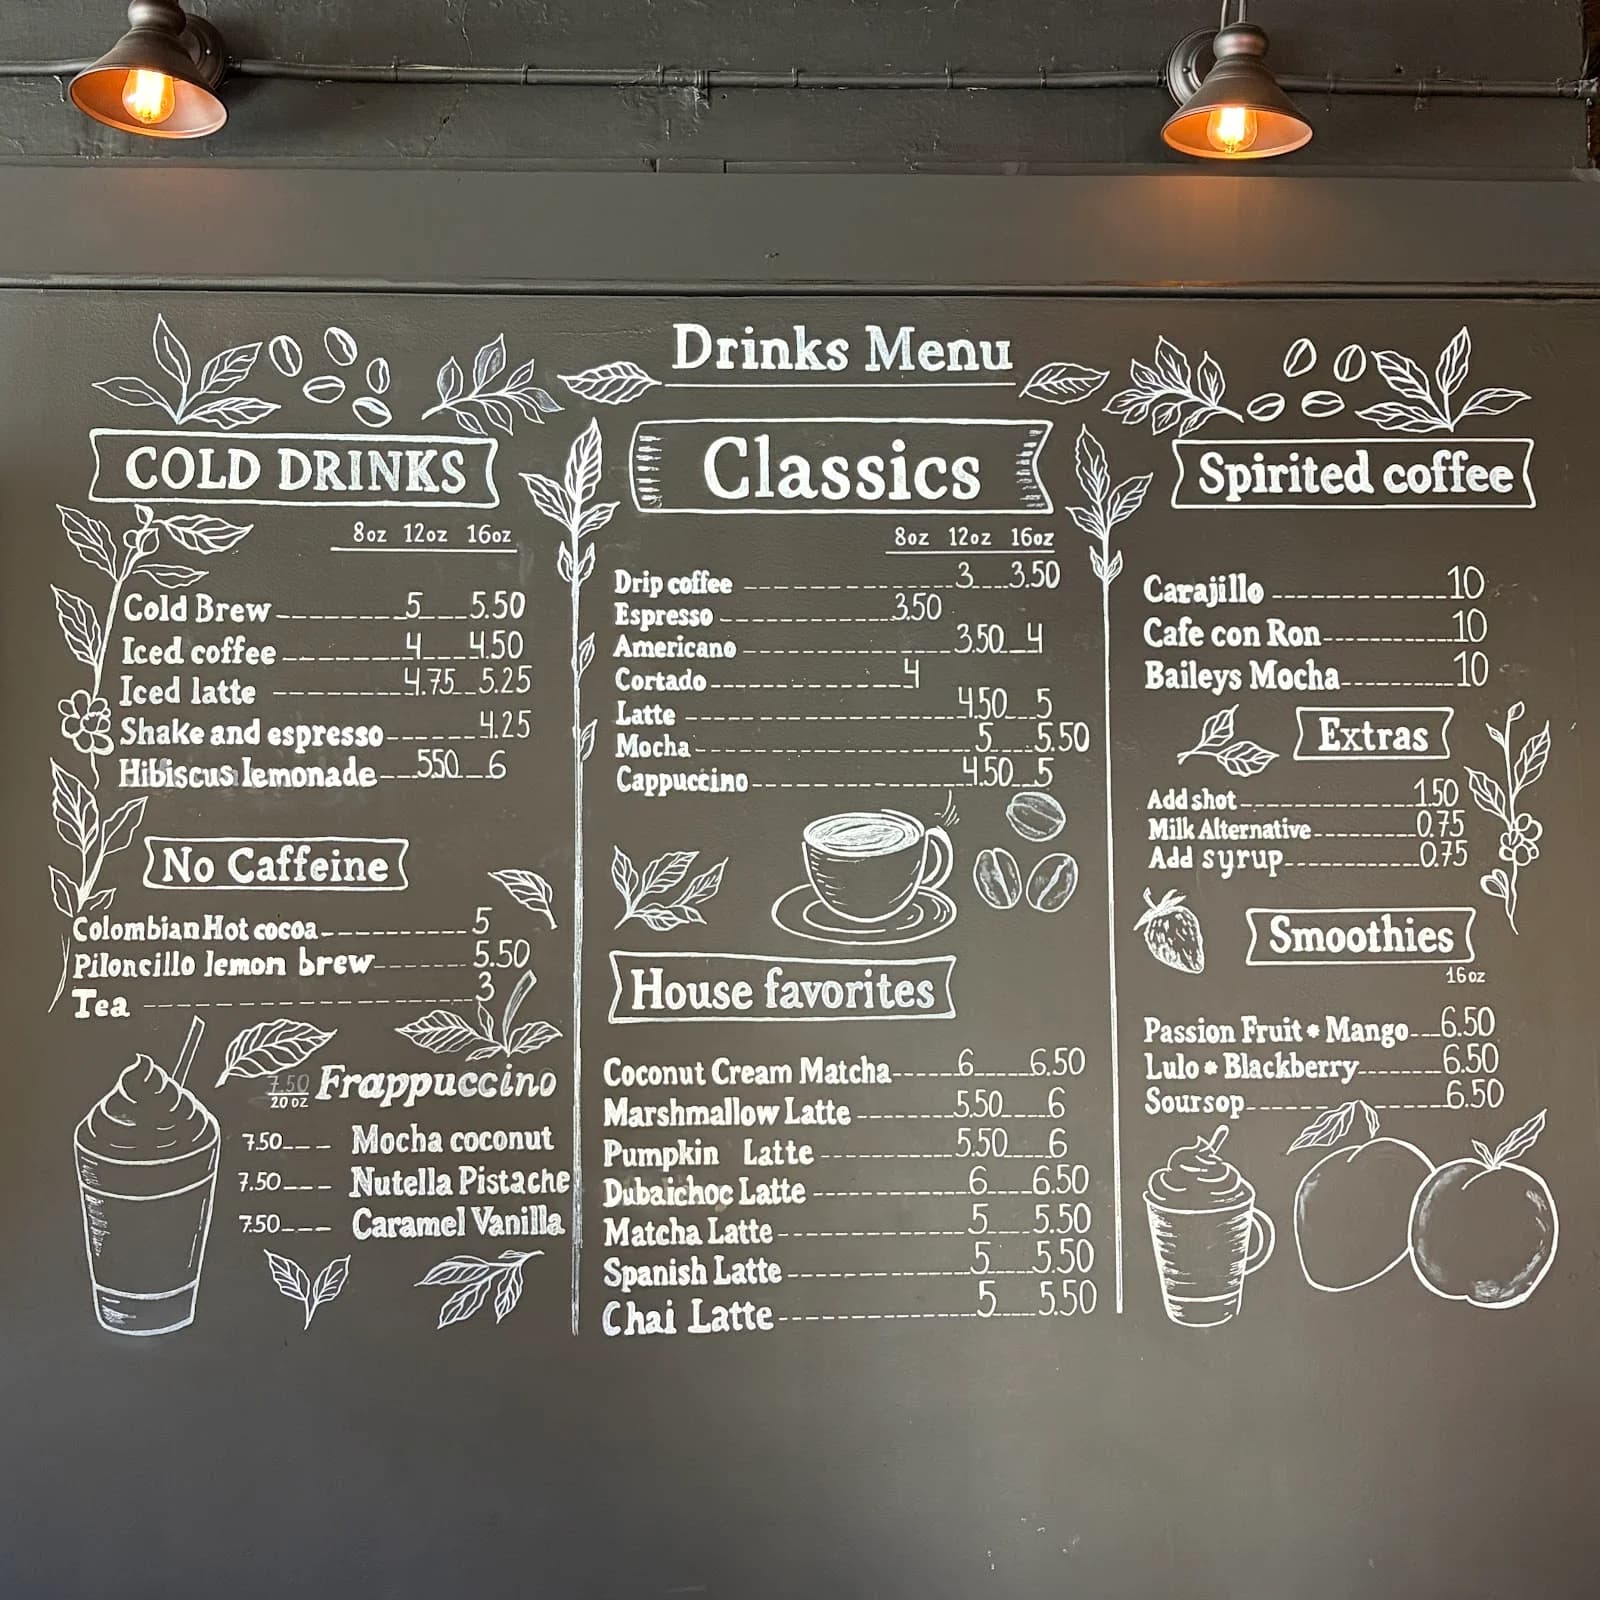 Drinks Menu
COLD DRINKS
8oz 12oz 16oz
Cold Brew 5 5.50
Iced coffee 4 4.50
Iced latte 4.75 5.25
Shake and espresso 4.25
Hibiscus lemonade 5.50 6
No Caffeine
Colombian Hot cocoa 5
Piloncillo lemon brew 5.50
Tea 3
7.50 Frappuccino
20 oz
7.50 Mocha coconut
7.50 Nutella Pistache
7.50 Caramel Vanilla
Classics
8oz 12oz 16oz
Drip coffee 3 3.50
Espresso 3.50
Americano 3.50 4
Cortado 4
Latte 4.50 5
Mocha 5 5.50
Cappuccino 4.50 5
House favorites
Coconut Cream Matcha 6 6.50
Marshmallow Latte 5.50 6
Pumpkin Latte 5.50 6
Dubaichoc Latte 6 6.50
Matcha Latte 5 5.50
Spanish Latte 5 5.50
Chai Latte 5 5.50
Spirited coffee
Carajillo 10
Cafe con Ron 10
Baileys Mocha 10
Extras
Add shot 1.50
Milk Alternative 0.75
Add syrup 0.75
Smoothies
16oz
Passion Fruit * Mango 6.50
Lulo * Blackberry 6.50
Soursop 6.50